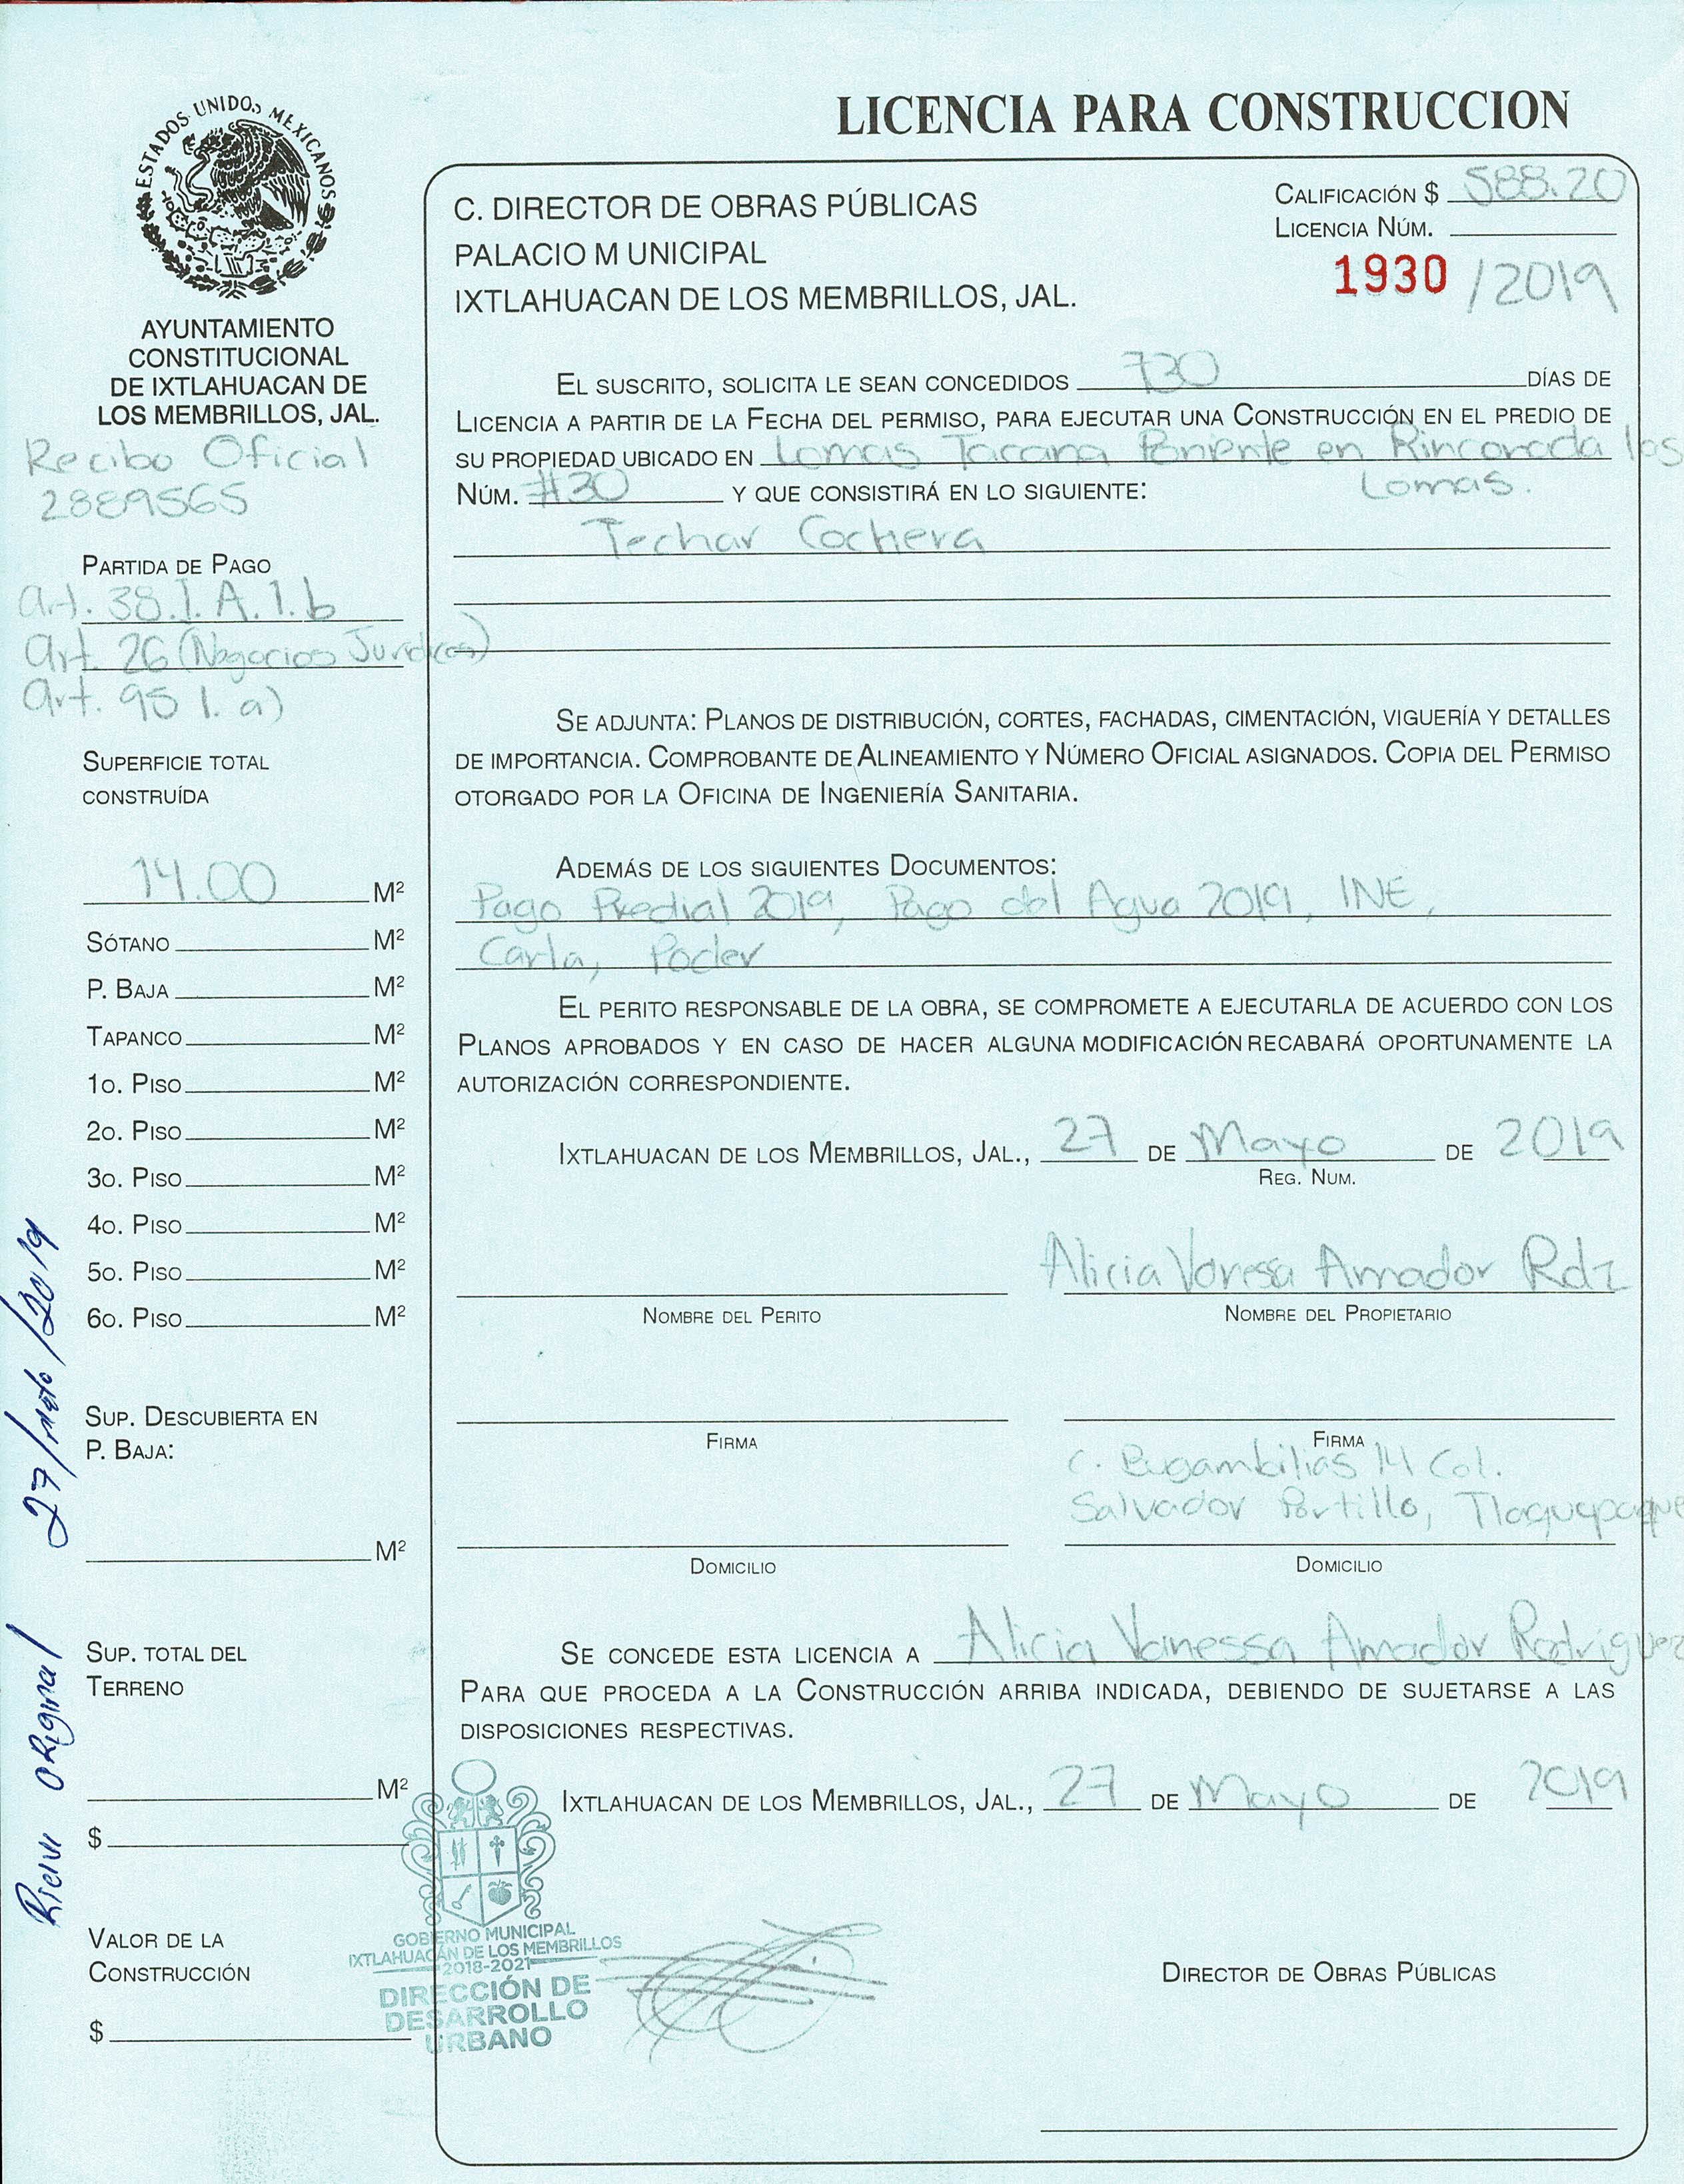 LICENCIA PARA CONSTRUCCION
ESTADOS UNIDOS MEXICANOS
AYUNTAMIENTO
CONSTITUCIONAL
DE IXTLAHUACAN DE
LOS MEMBRILLOS, JAL.
Recibo Oficial
2889565
PARTIDA DE PAGO
Art. 38.I.A.1.b
Art. 26 (Negocios Juridicos)
Art. 95 I. a)
SUPERFICIE TOTAL
CONSTRUÍDA
14.00 M²
SÓTANO M²
P. BAJA M²
TAPANCO M²
1O. PISO M²
2O. PISO M²
3O. PISO M²
4O. PISO M²
5O. PISO M²
6O. PISO M²
SUP. DESCUBIERTA EN
P. BAJA:
M²
SUP. TOTAL DEL
TERRENO
M²
$
VALOR DE LA
CONSTRUCCIÓN
$
Original 27/Mayo/2019
C. DIRECTOR DE OBRAS PÚBLICAS
PALACIO M UNICIPAL
IXTLAHUACAN DE LOS MEMBRILLOS, JAL.
CALIFICACIÓN $ 588.20
LICENCIA NÚM.
1930 /2019
EL SUSCRITO, SOLICITA LE SEAN CONCEDIDOS 730 DÍAS DE
LICENCIA A PARTIR DE LA FECHA DEL PERMISO, PARA EJECUTAR UNA CONSTRUCCIÓN EN EL PREDIO DE
SU PROPIEDAD UBICADO EN Lomas Tacana Poniente en Rinconada los
NÚM. #30 Y QUE CONSISTIRÁ EN LO SIGUIENTE: Lomas.
Techar Cochera
SE ADJUNTA: PLANOS DE DISTRIBUCIÓN, CORTES, FACHADAS, CIMENTACIÓN, VIGUERÍA Y DETALLES
DE IMPORTANCIA. COMPROBANTE DE ALINEAMIENTO Y NÚMERO OFICIAL ASIGNADOS. COPIA DEL PERMISO
OTORGADO POR LA OFICINA DE INGENIERÍA SANITARIA.
ADEMÁS DE LOS SIGUIENTES DOCUMENTOS:
Pago Predial 2019, Pago del Agua 2019, INE,
Carta, Poder
EL PERITO RESPONSABLE DE LA OBRA, SE COMPROMETE A EJECUTARLA DE ACUERDO CON LOS
PLANOS APROBADOS Y EN CASO DE HACER ALGUNA MODIFICACIÓN RECABARÁ OPORTUNAMENTE LA
AUTORIZACIÓN CORRESPONDIENTE.
IXTLAHUACAN DE LOS MEMBRILLOS, JAL., 27 DE Mayo DE 2019
REG. NUM.
Alicia Vanessa Amador Rdz
NOMBRE DEL PERITO NOMBRE DEL PROPIETARIO
FIRMA FIRMA
C. Bugambilias 14 Col.
Salvador Portillo, Tlaquepaque
DOMICILIO DOMICILIO
SE CONCEDE ESTA LICENCIA A Alicia Vanessa Amador Rodriguez
PARA QUE PROCEDA A LA CONSTRUCCIÓN ARRIBA INDICADA, DEBIENDO DE SUJETARSE A LAS
DISPOSICIONES RESPECTIVAS.
IXTLAHUACAN DE LOS MEMBRILLOS, JAL., 27 DE Mayo DE 2019
GOBIERNO MUNICIPAL
IXTLAHUACÁN DE LOS MEMBRILLOS
2018-2021
DIRECCIÓN DE
DESARROLLO
URBANO
DIRECTOR DE OBRAS PÚBLICAS